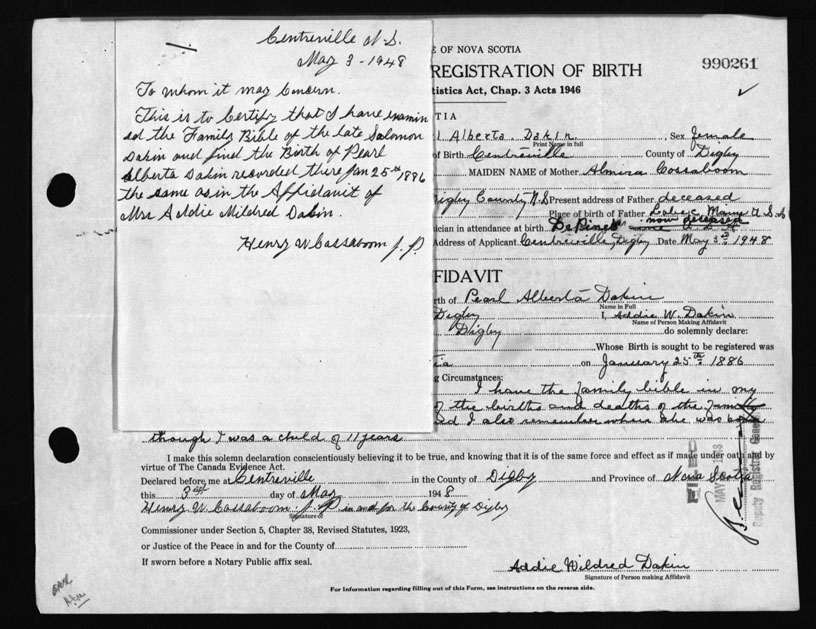 Centreville N.S.
May 3 - 1948
To whom it may Concern.
This is to Certify that I have examin
ed the Family Bible of the late Solomon
Dakin and find the Birth of Pearl
Alberta Dakin recorded there Jan 25th 1886
the same as in the Affidavit of
Mrs Addie Mildred Dakin.
Henry W Cassaboom J.P.
E OF NOVA SCOTIA
REGISTRATION OF BIRTH
990261
tistics Act, Chap. 3 Acts 1946
TIA
l Alberta Dakin Sex female
Print Name in full
of Birth Centreville County of Digby
MAIDEN NAME of Mother Almira Cossaboom
Digby County N.S. Present address of Father deceased
Place of birth of Father Lubec Maine U.S.A
now deceased
ician in attendance at birth
Address of Applicant Centreville, Digby Date May 3rd 1948
FIDAVIT
rth of Pearl Alberta Dakin
Name in Full
Digby I, Addie W. Dakin
Name of Person Making Affidavit
Digby do solemnly declare:
Whose Birth is sought to be registered was
tia on January 25th 1886
g Circumstances:
I have the family bible in my
of the births and deaths of the family
ed I also remember when she was born
though I was a child of 11 years
I make this solemn declaration conscientiously believing it to be true, and knowing that it is of the same force and effect as if made under oath and by
virtue of The Canada Evidence Act.
Declared before me at Centreville in the County of Digby and Province of Nova Scotia
this 3rd day of May 1948
Henry W. Cassaboom J.P. in and for the County of Digby
Signature of
Commissioner under Section 5, Chapter 38, Revised Statutes, 1923,
or Justice of the Peace in and for the County of
If sworn before a Notary Public affix seal.
Addie Mildred Dakin
Signature of Person making Affidavit
For Information regarding filling out of this Form, see instructions on the reverse side.
FILED
MAY
Deputy Registrar General